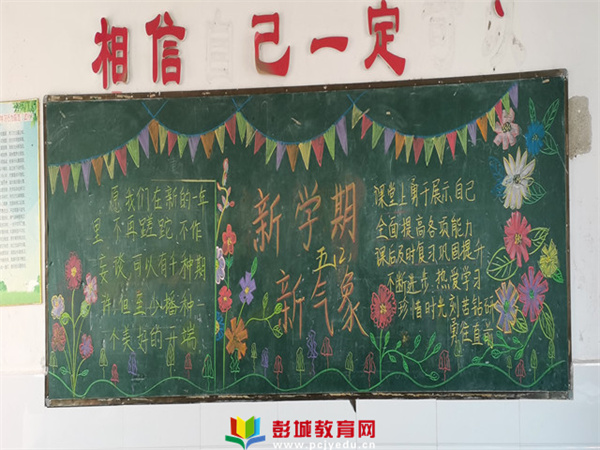 相信 己一定
愿我们在新的一年
里不再蹉跎不作
妄谈可以有千种期
许但至少播种一
个美好的开端
新学期
五(2)
新气象
课堂上勇于展示自己
全面提高各项能力
课后及时复习巩固提升
不断进步,热爱学习
珍惜时光刻苦钻研
勇往直前
彭城教育网
www.pcjyedu.cn